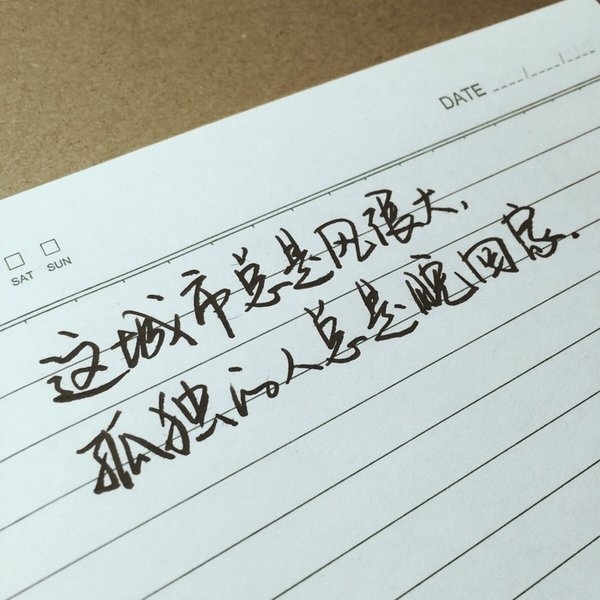 DATE ____/____/____
SAT SUN
这城市总是风很大.
孤独的人总是晚回家.